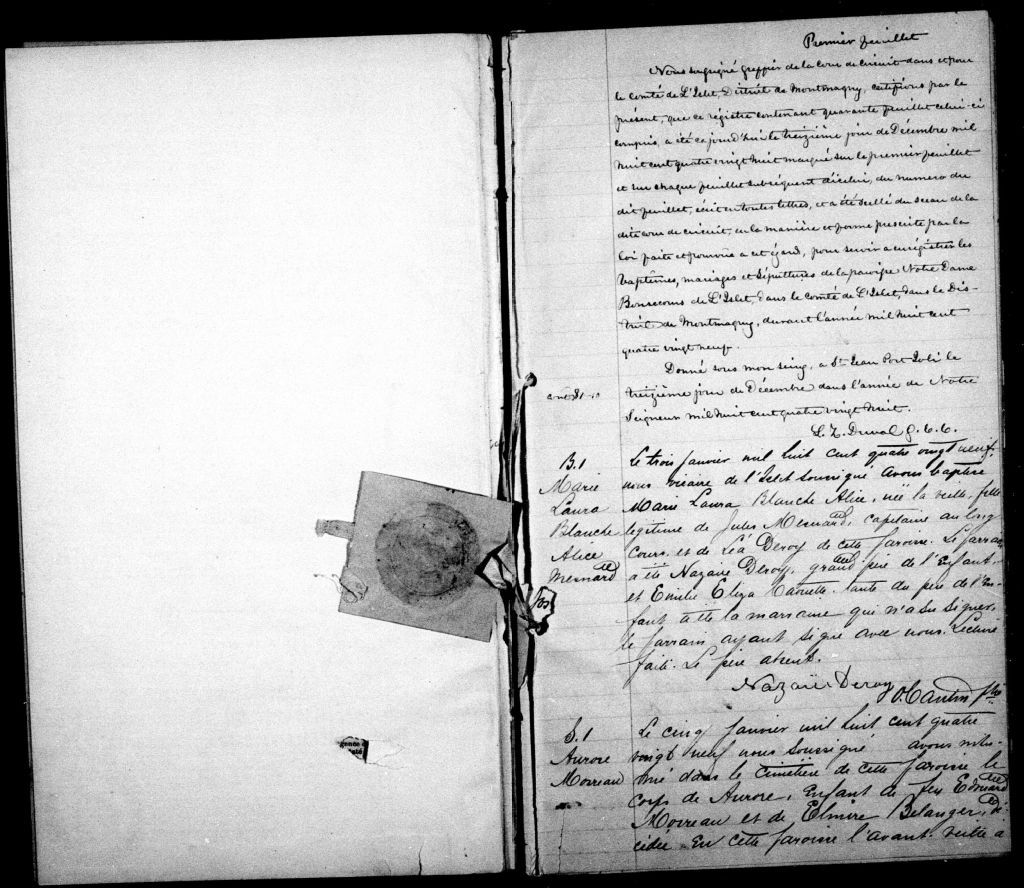 Premier feuillet
Nous soussigné greffier de la cour de circuit dans et pour
le comté de L'Islet, District de Montmagny, certifions par le
présent, que ce régistre contenant quarante feuillet celui-ci
compris, a été ce jourd'hui le treizième jour de Décembre mil
huit cent quatre vingt huit marqué sur le premier feuillet
et sur chaque feuillet subséquent d'icelui, du numero du
dit feuillet, écrit en toutes lettres, et a été scellé du sceau de la
dite cour de circuit, en la manière et forme prescrite par la
loi faite et pourvue a cet égard, pour servir a enrégistrer les
baptêmes, mariages et sépultures de la paroisse Notre Dame
Bonsecours de L'Islet, dans le comté de L'Islet, dans le Dis-
trict de Montmagny, durant l'année mil huit cent
quatre vingt neuf.
Donné sous mon seing, a St Jean Port Joli le
treizième jour de Décembre dans l'année de Notre
Seigneur mil huit cent quatre vingt huit.
L. Z. Duval G. C. C.
B.1
Marie
Laura
Blanche
Alice
Mesnard
Le trois Janvier mil huit cent quatre vingt neuf,
nous vicaire de l'Islet soussigné avons baptisé
Marie Laura Blanche Alice, née la veille, fille
légitime de Jules Mesnard, capitaine au long
cours, et de Léa Deroy de cette paroisse. Le parrain
a été Nazaire Deroy, grand père de l'enfant,
et Emilie Eliza Caouette tante du père de l'en-
fant a été la marraine qui n'a su signer,
le parrain ayant signé avec nous. Lecture
faite. Le père absent.
Nazaire Deroy
O. Cantin Ptre
S.1
Aurore
Morreau
Le cinq Janvier mil huit cent quatre
vingt neuf nous soussigné avons inhu-
mé dans le cimetière de cette paroisse le
corps de Aurore, enfant de feu Edouard
Morreau et de Elmire Belanger, dé-
cédée en cette paroisse l'avant-veille a